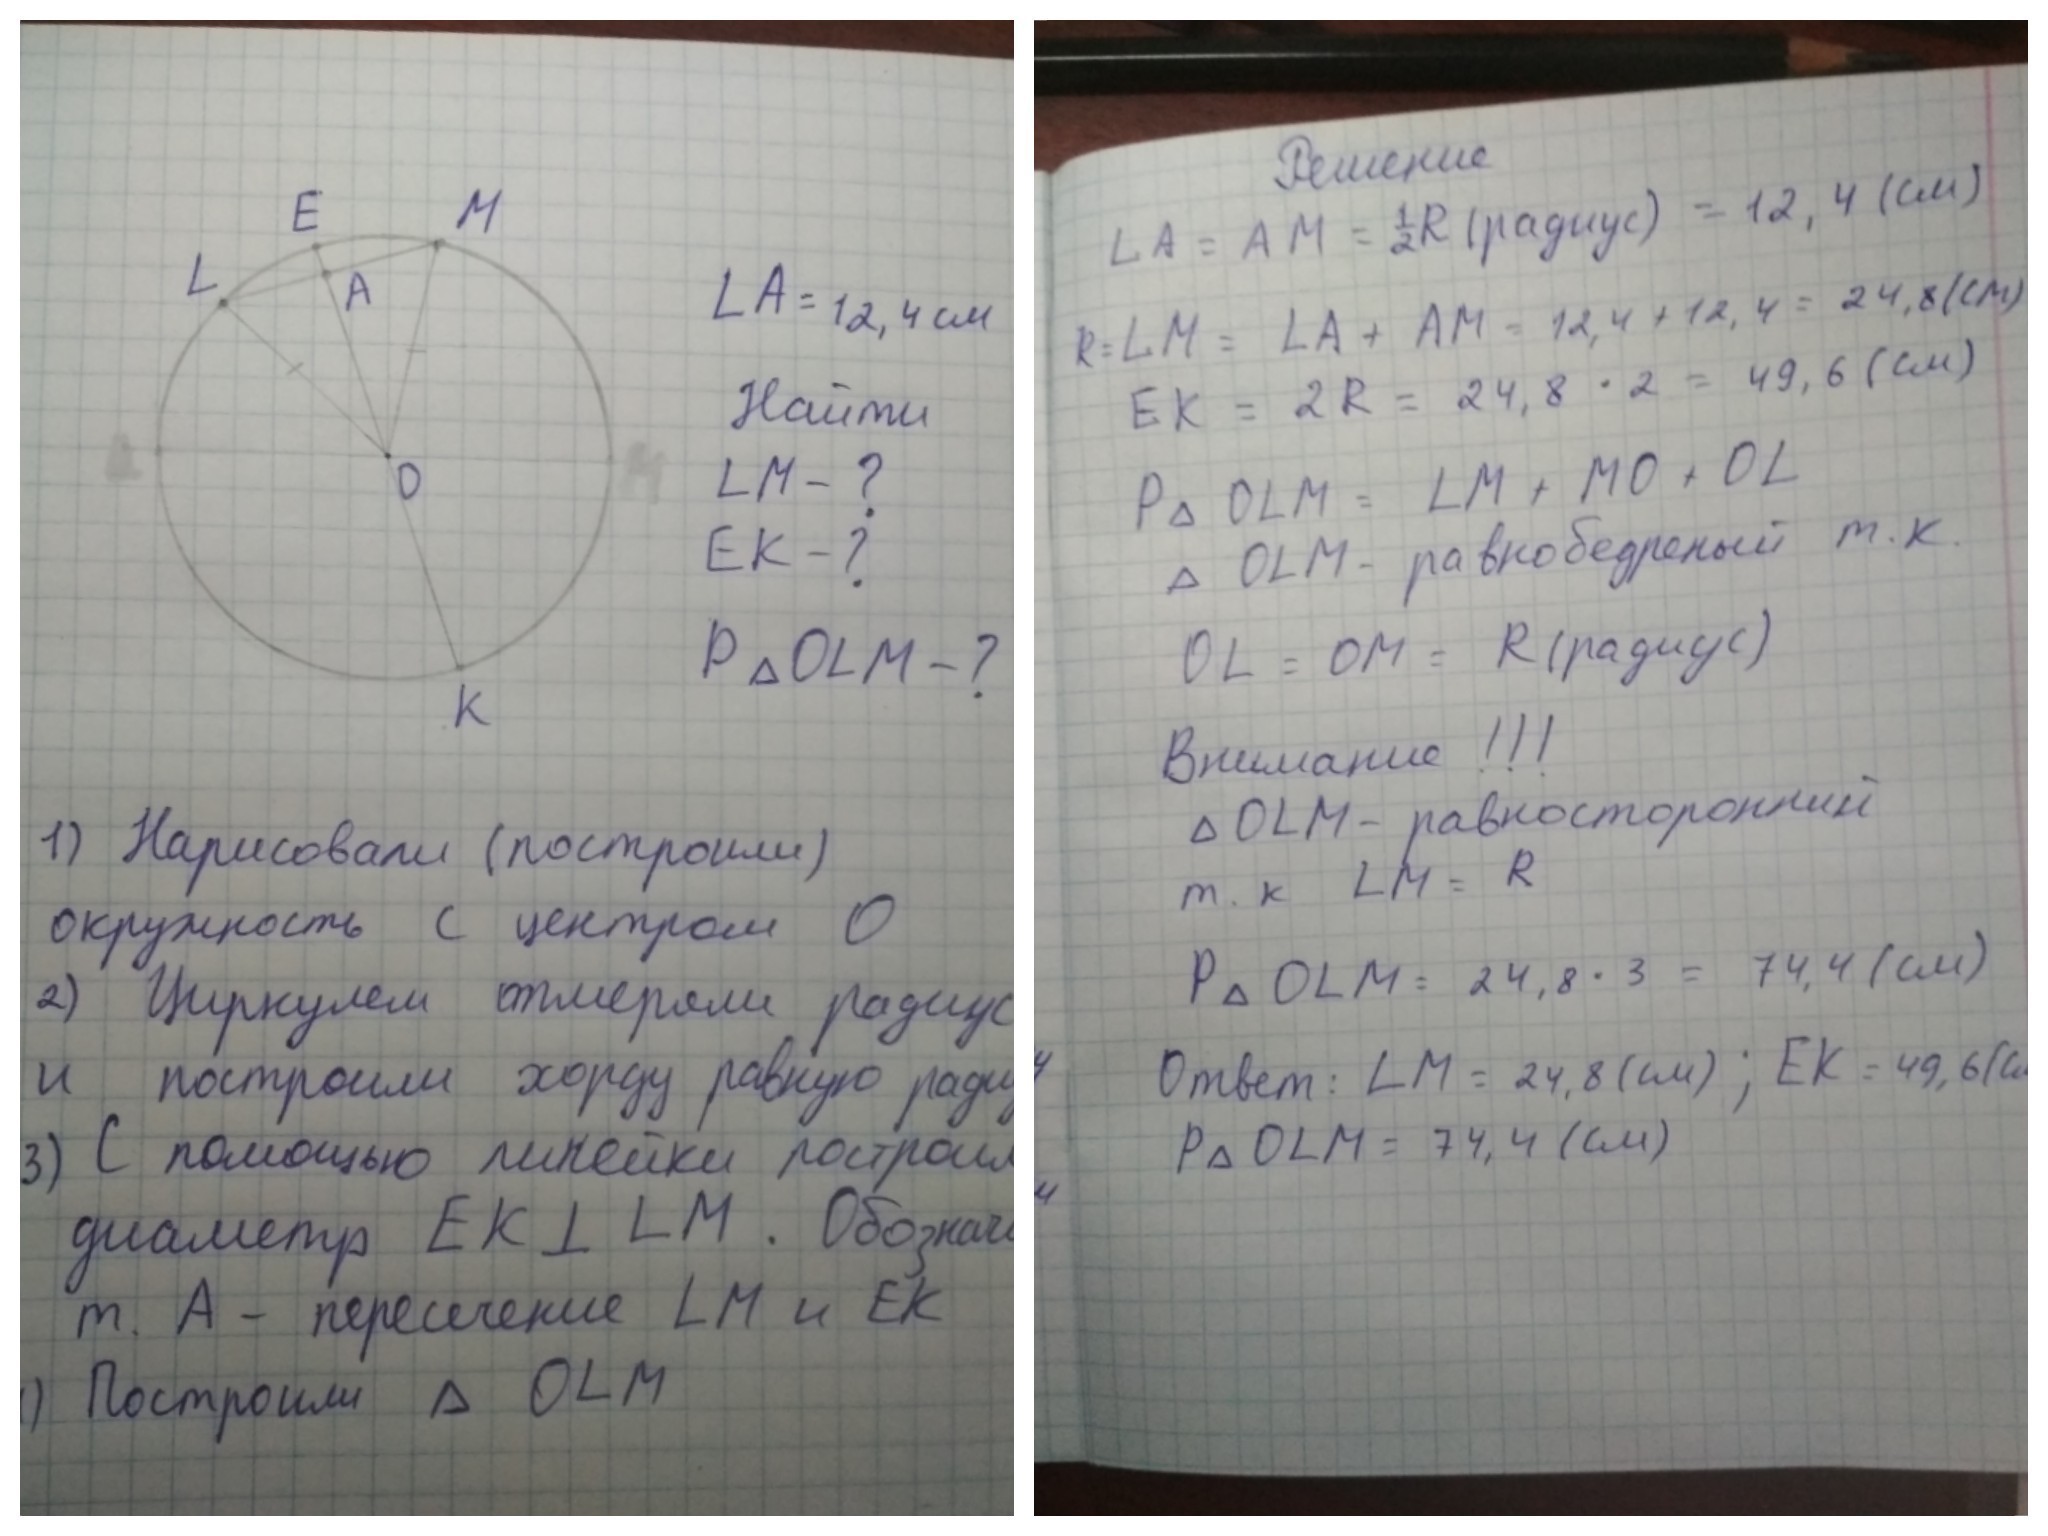 E
M
L
A
O
K
LA = 12,4 см
Найти
LM - ?
EK - ?
P△OLM - ?
1) Нарисовали (построили)
окружность с центром О
2) Циркулем отмеряли радиус
и построили хорду равную
3) С помощью линейки
диаметр EK ⊥ LM.
т. А - пересечение LM и EK
) Построили △ OLM
Решение
LA = AM = ½R (радиус) = 12,4 (см)
R = LM = LA + AM = 12,4 + 12,4 = 24,8 (см)
EK = 2R = 24,8 · 2 = 49,6 (см)
P△ OLM = LM + MO + OL
△ OLM - равнобедреный т.к.
OL = OM = R (радиус)
Внимание !!!
△ OLM - равносторонний
т.к LM = R
P△ OLM = 24,8 · 3 = 74,4 (см)
Ответ: LM = 24,8 (см); EK = 49,6 (см
P△ OLM = 74,4 (см)